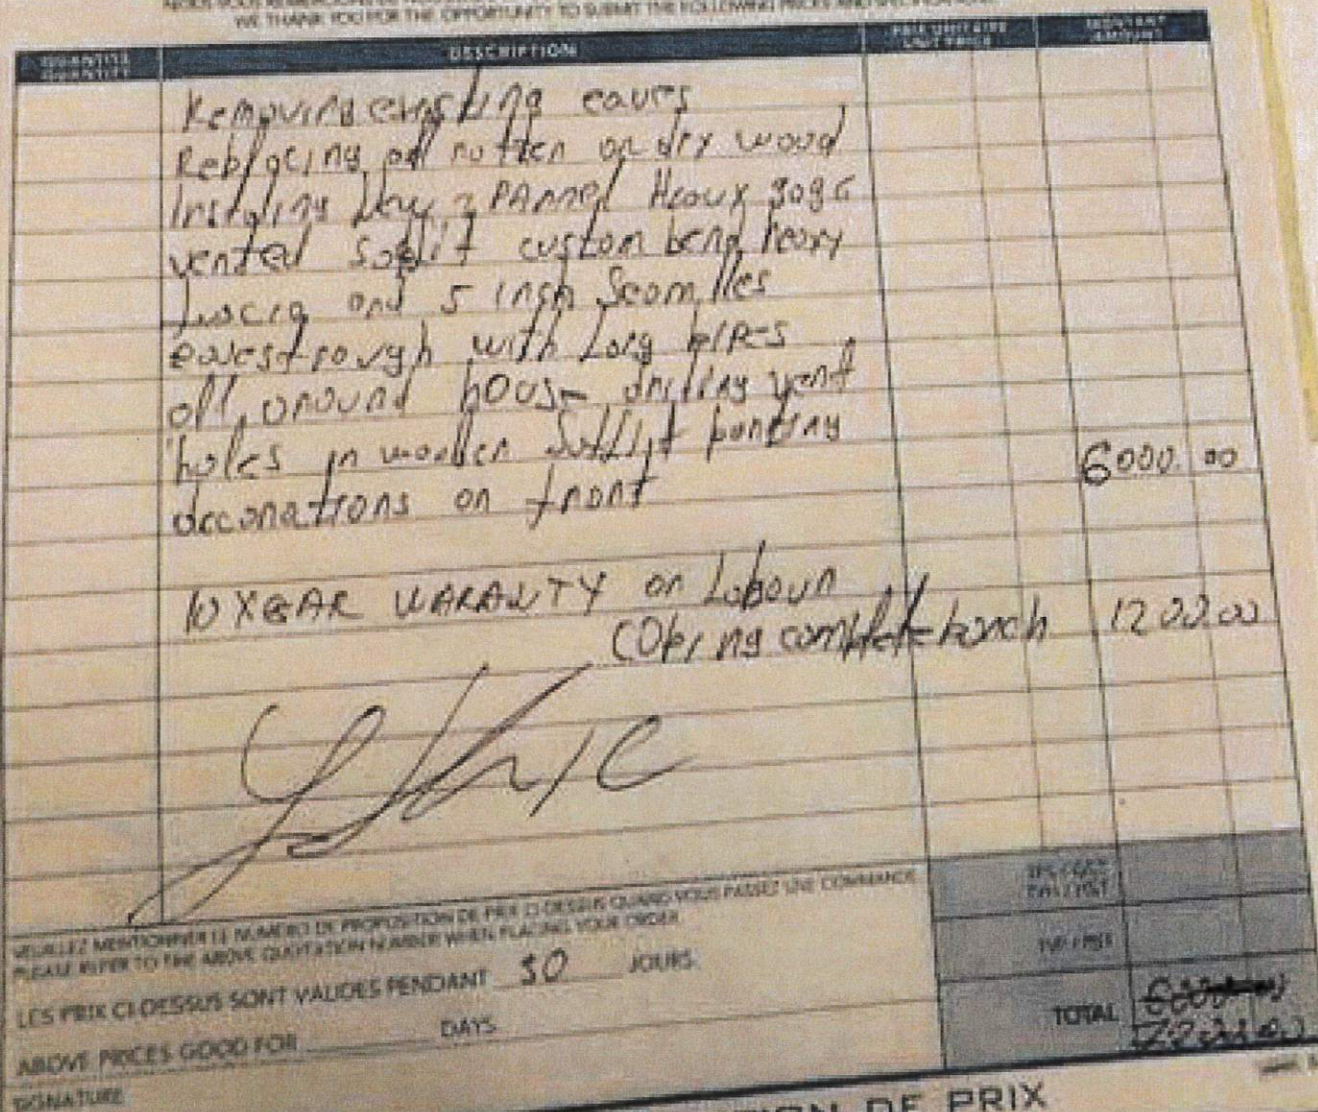 WE THANK YOU FOR THE OPPORTUNITY TO SUBMIT THE FOLLOWING PRICES AND SPECIFICATIONS
QUANTITÉ
QUANTITY
DESCRIPTION
PRIX UNITAIRE
UNIT PRICE
MONTANT
AMOUNT
Removing existing eaves
Replacing all rotten or dry wood
Instaling New 2 PANNel Heavy gage
vented Soffit custom bend heavy
and 5 inch Seamlles
eavestrough with Larg PIPES
all around house drilling vent
holes in wooden Soffit painting
deconations on front
6000.00
10 YEAR WARANTY on Labour
complete porch 1200.00
VEUILLEZ MENTIONNER LE NUMÉRO DE PROPOSITION DE PRIX CI-DESSUS QUAND VOUS PASSEZ UNE COMMANDE
PLEASE REFER TO THE ABOVE QUOTATION NUMBER WHEN PLACING YOUR ORDER
LES PRIX CI-DESSUS SONT VALIDES PENDANT 30 JOURS.
ABOVE PRICES GOOD FOR DAYS
SIGNATURE
TOTAL
DE PRIX